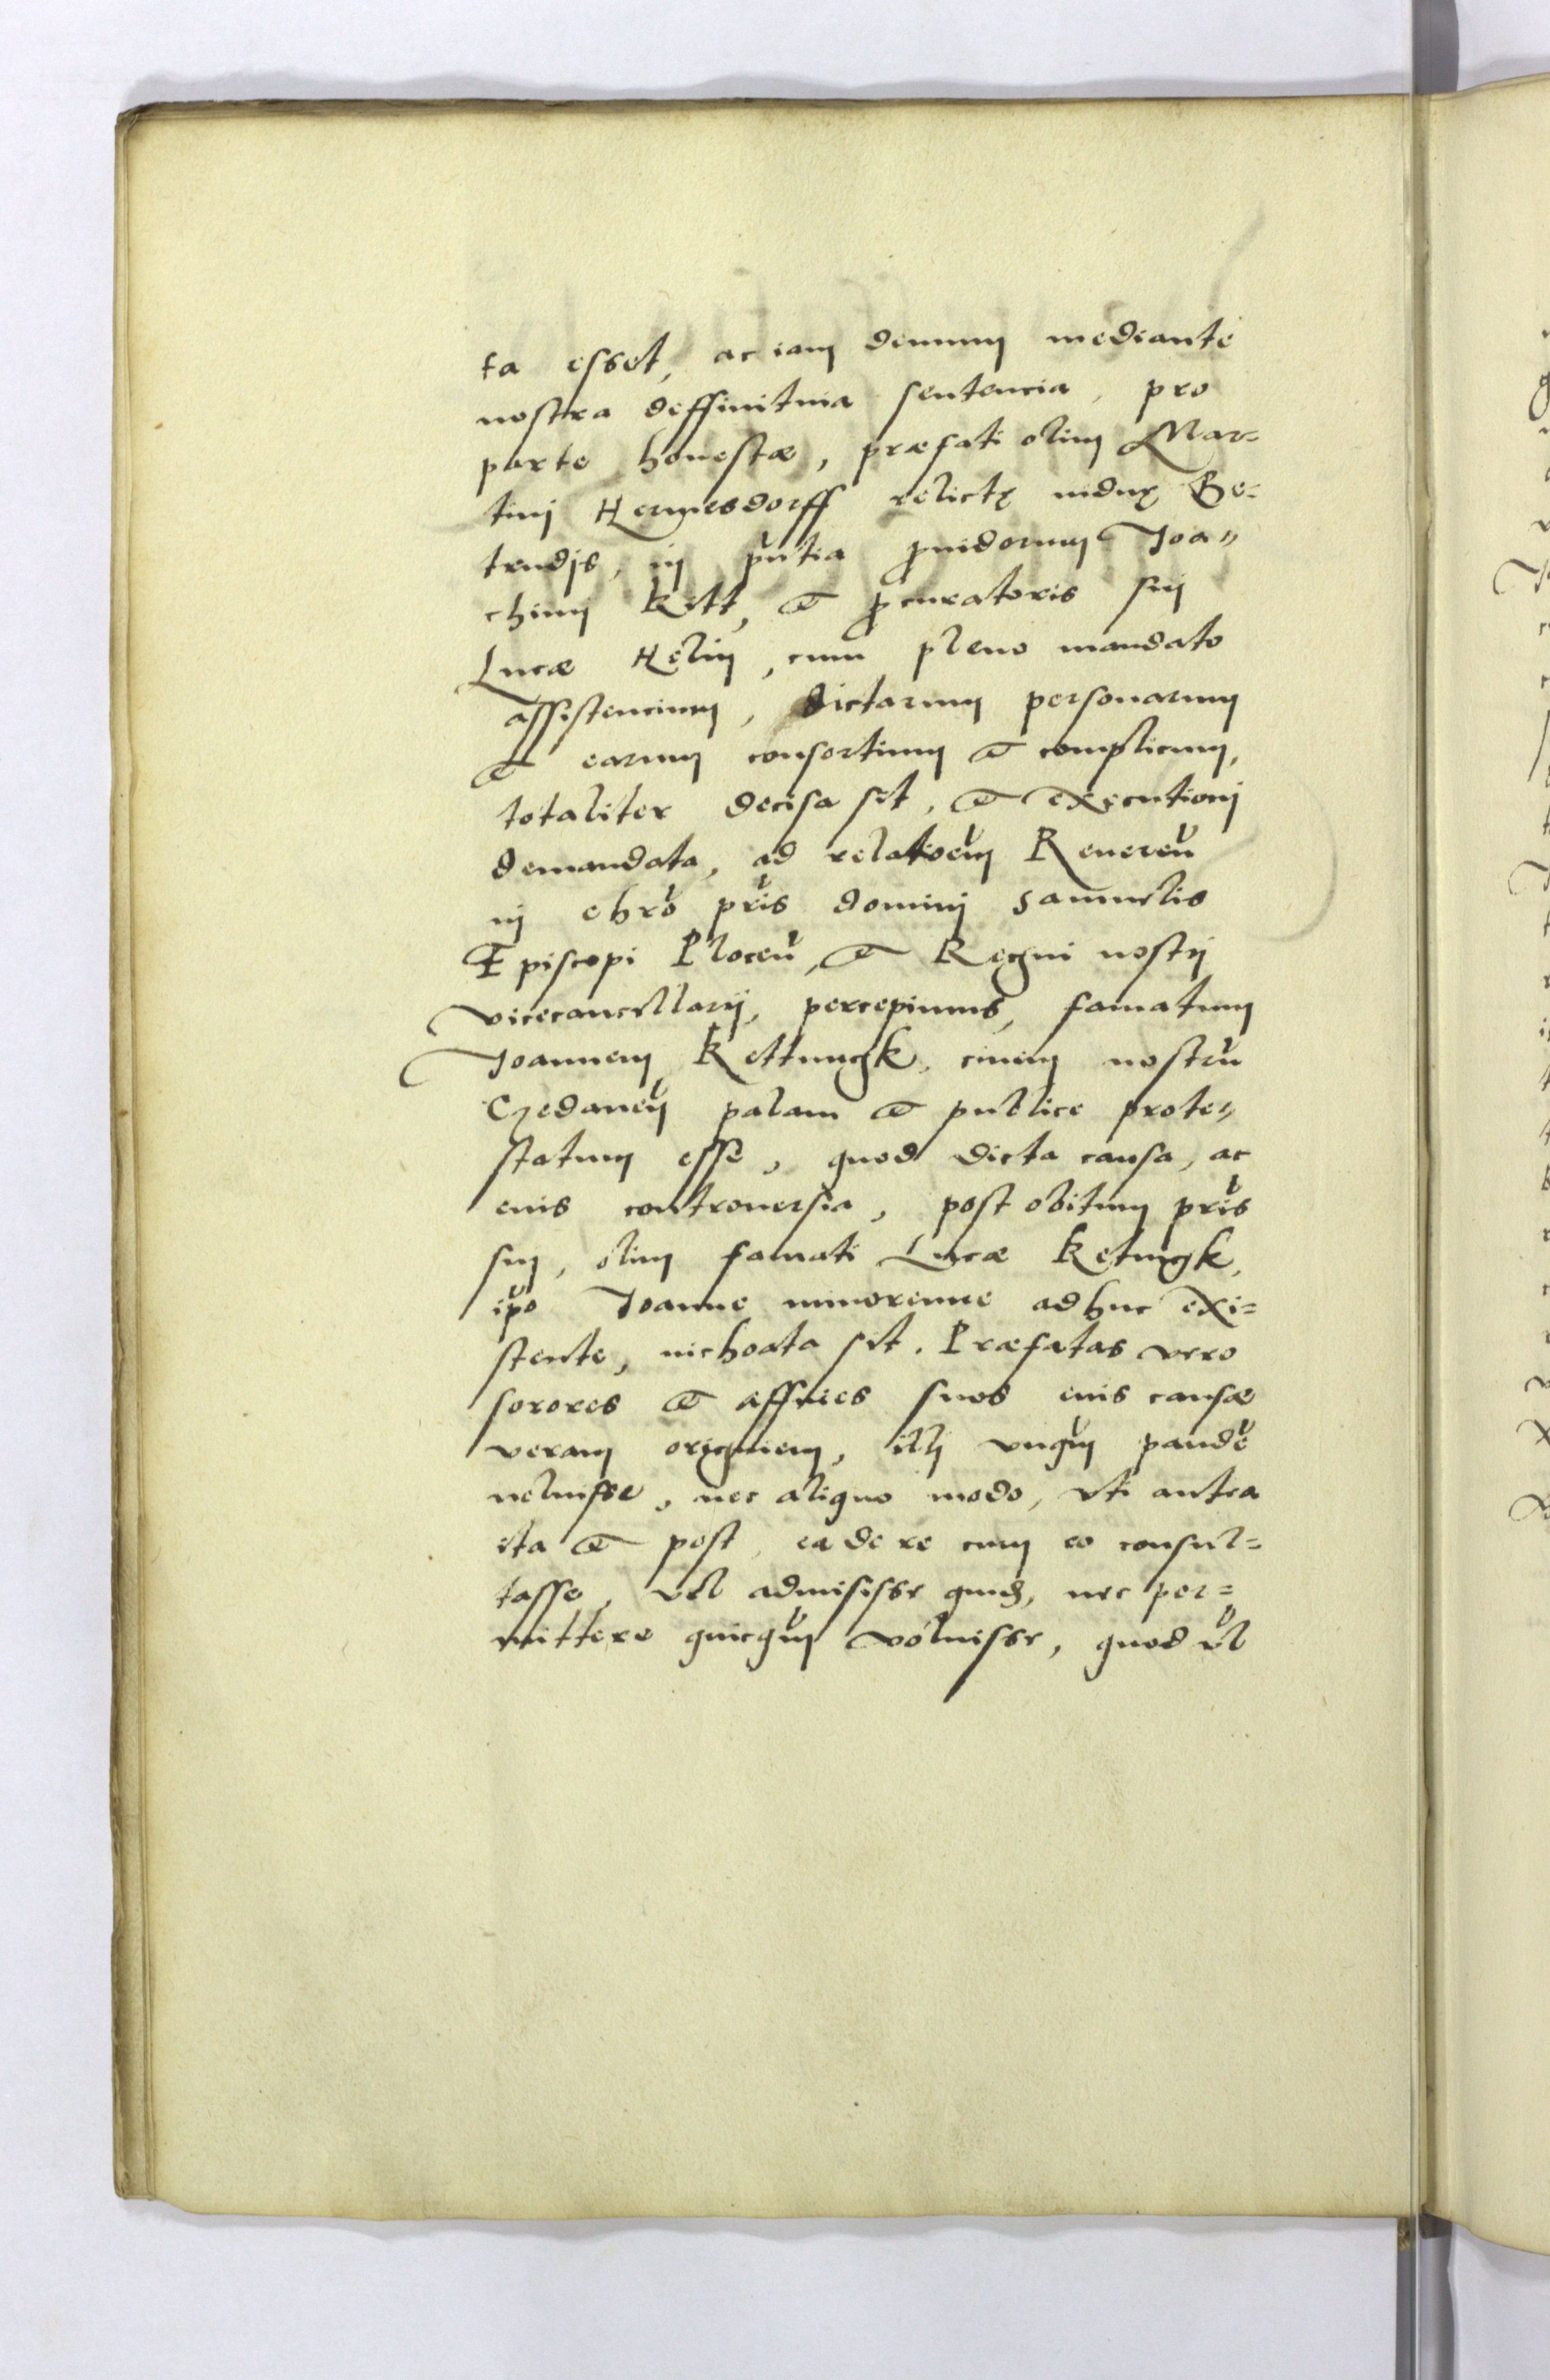 ta esset, ac iam demum mediante
nostra deffinitiua sentencia, pro
parte honestæ, præfati olim Mar=
tini Hermesdorff relictę viduę Ge=
trudis, in pn̄tia prouidorum Joa=
chimi Kitt, et procuratoris sui
Lucæ Helin, cum pleno mandato
assistencium, dictarum personarum
et earum consortium et complicum,
totaliter decisa sit, et executioni
demandata, ad relatioēm Reueren̄
in chr̄o pr̄is domini Samuelis
Episcopi Plocen̄, et Regni nostri
vicecancellarij, percepimus, famatum
Joannem Kettingk, ciuem nostrū
Gedanen̄ palam et publice prote=
statum esse, quod dicta causa, ac
eius controuersia, post obitum pr̄is
sui, olim famati Lucæ Ketingk,
ip̄o Joanne minorenne adhuc exi=
stente, inchoata sit. Præfatas vero
sorores et affines suos eius causæ
veram originem, illi vnqū pandē
noluisse, nec aliquo modo, vti antea
ita et post, ea de re cum eo consul=
tasse, vel admisisse quid, nec per=
mittere quicqū voluisse, quod vl̄